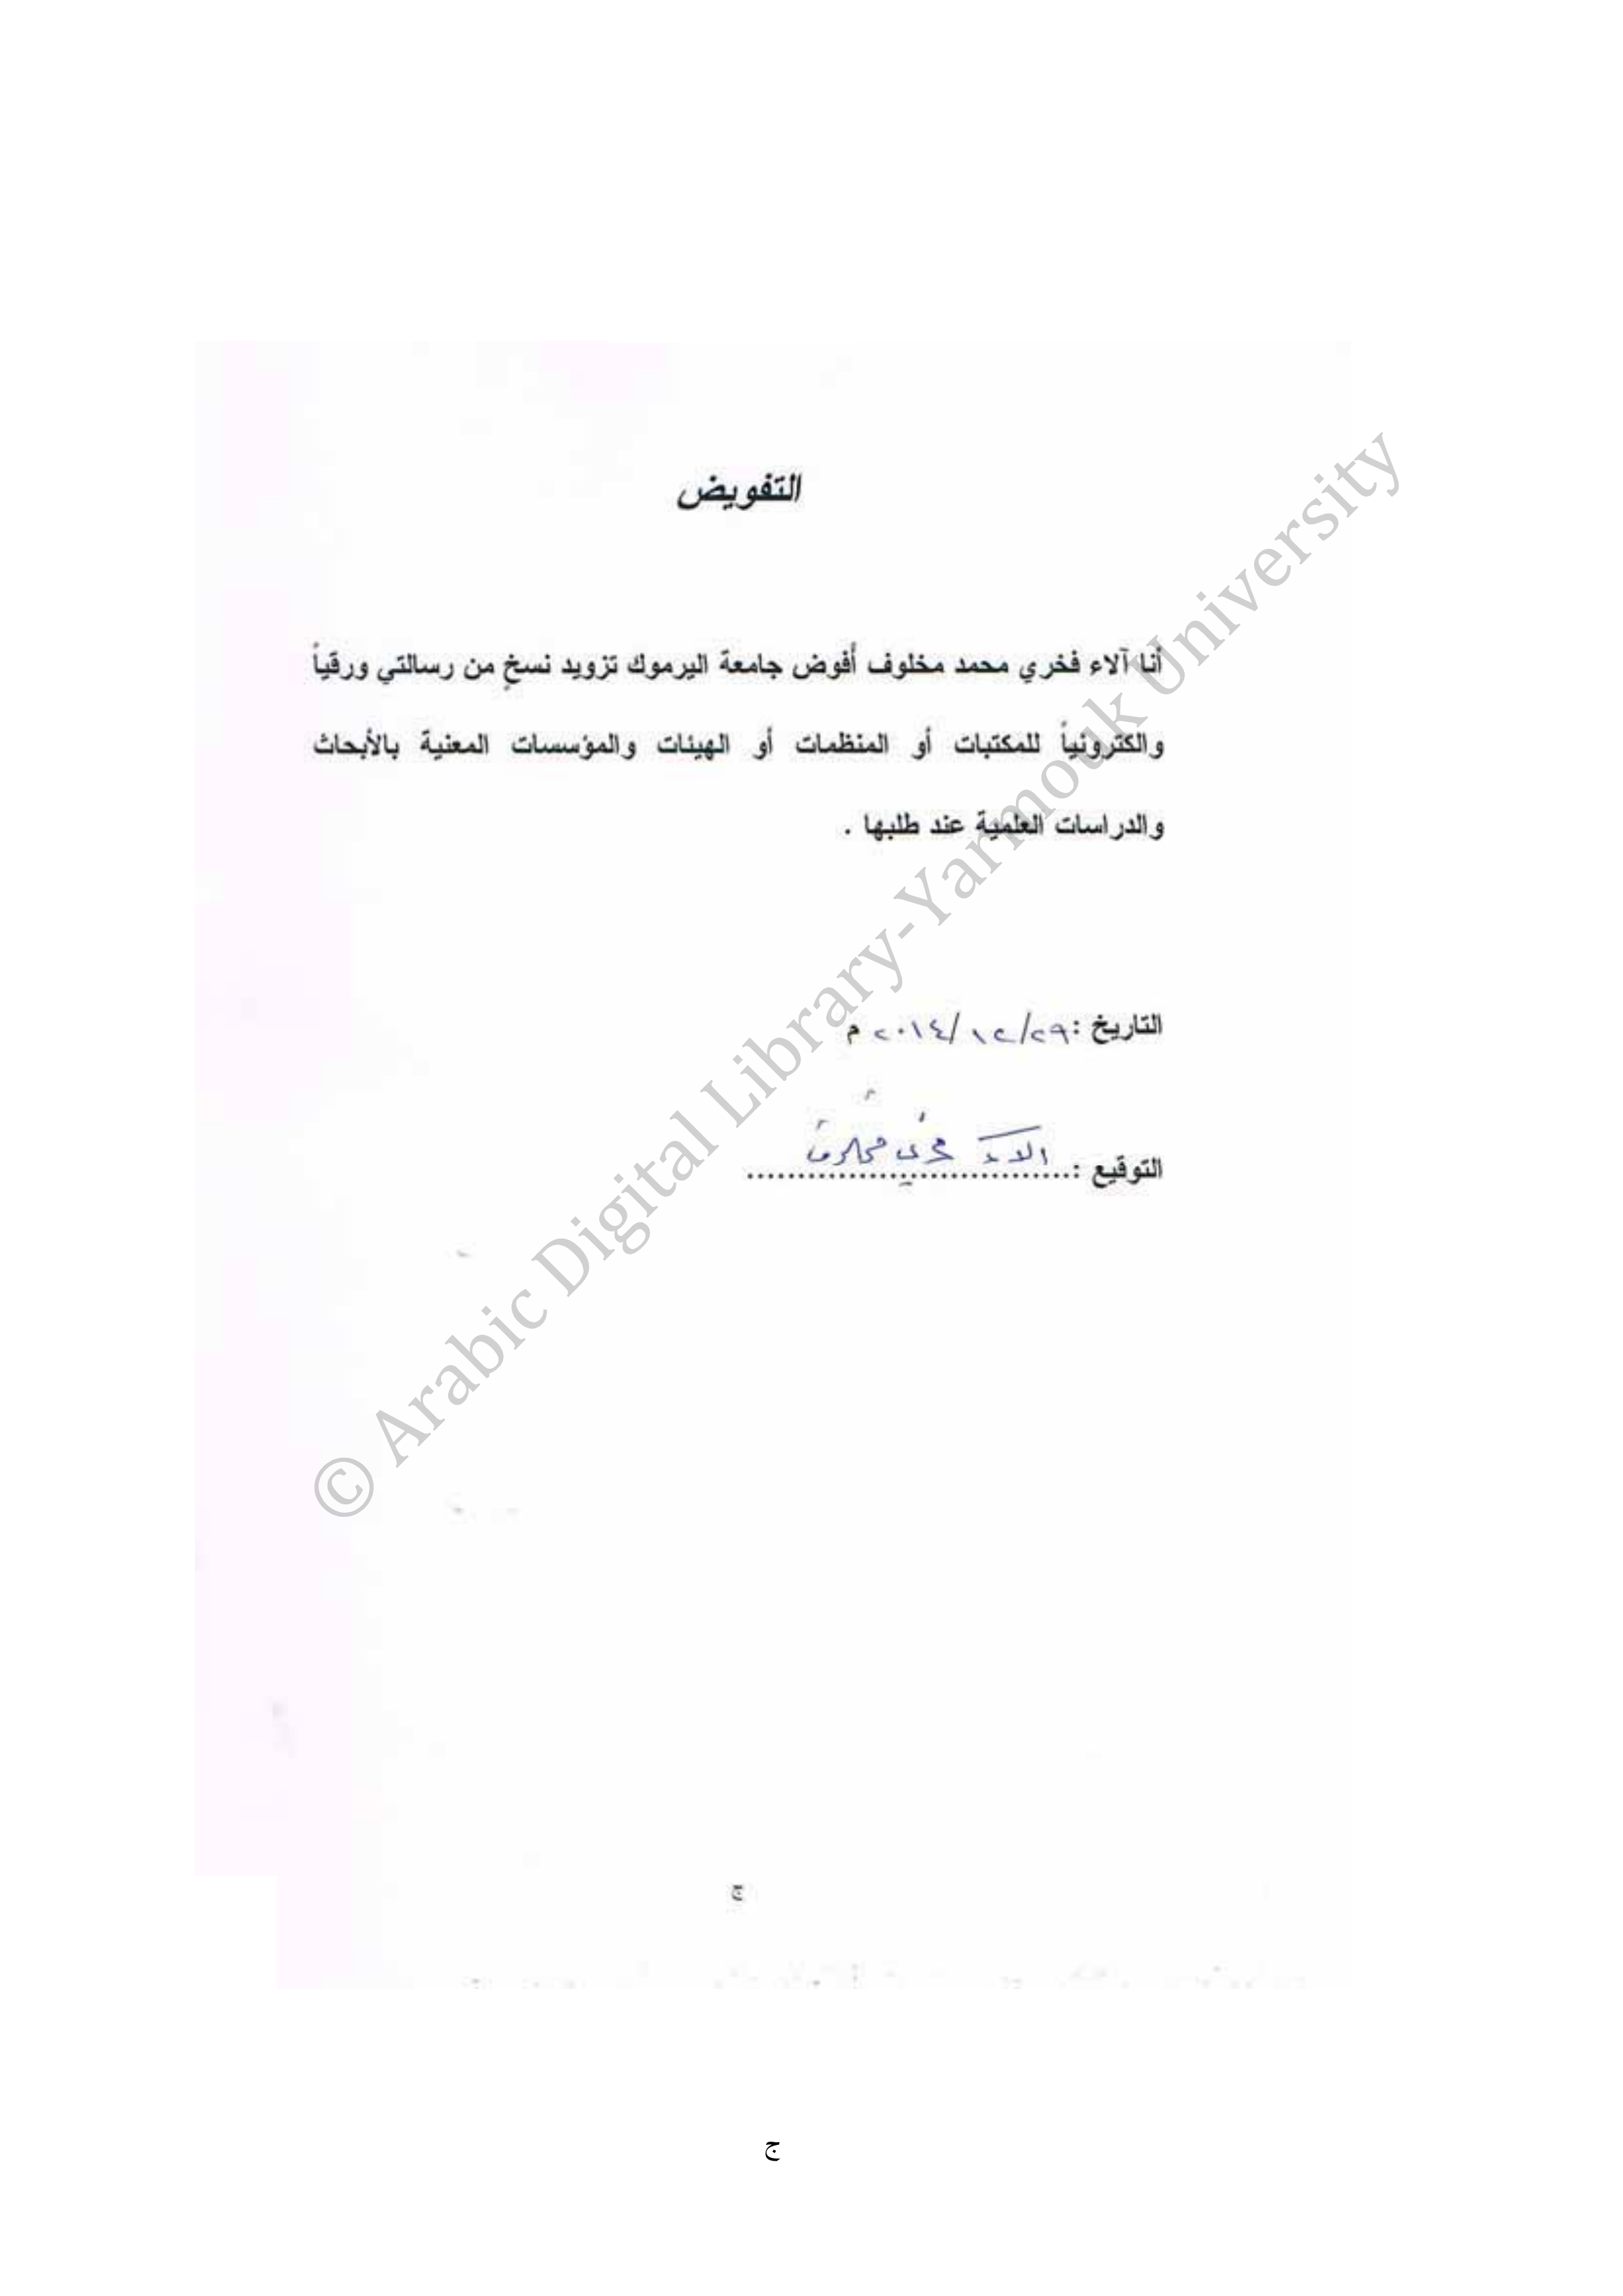 التفويض
أنا آلاء فخري محمد مخلوف أُفوض جامعة اليرموك تزويد نسخٍ من رسالتي ورقياً
والكترونياً للمكتبات أو المنظمات أو الهيئات والمؤسسات المعنية بالأبحاث
والدراسات العلمية عند طلبها .
التاريخ :٢٩/١٢/٢٠١٤ م
التوقيع :الاء فخري مخلوف................................
© Arabic Digital Library-Yarmouk University
ج
ج